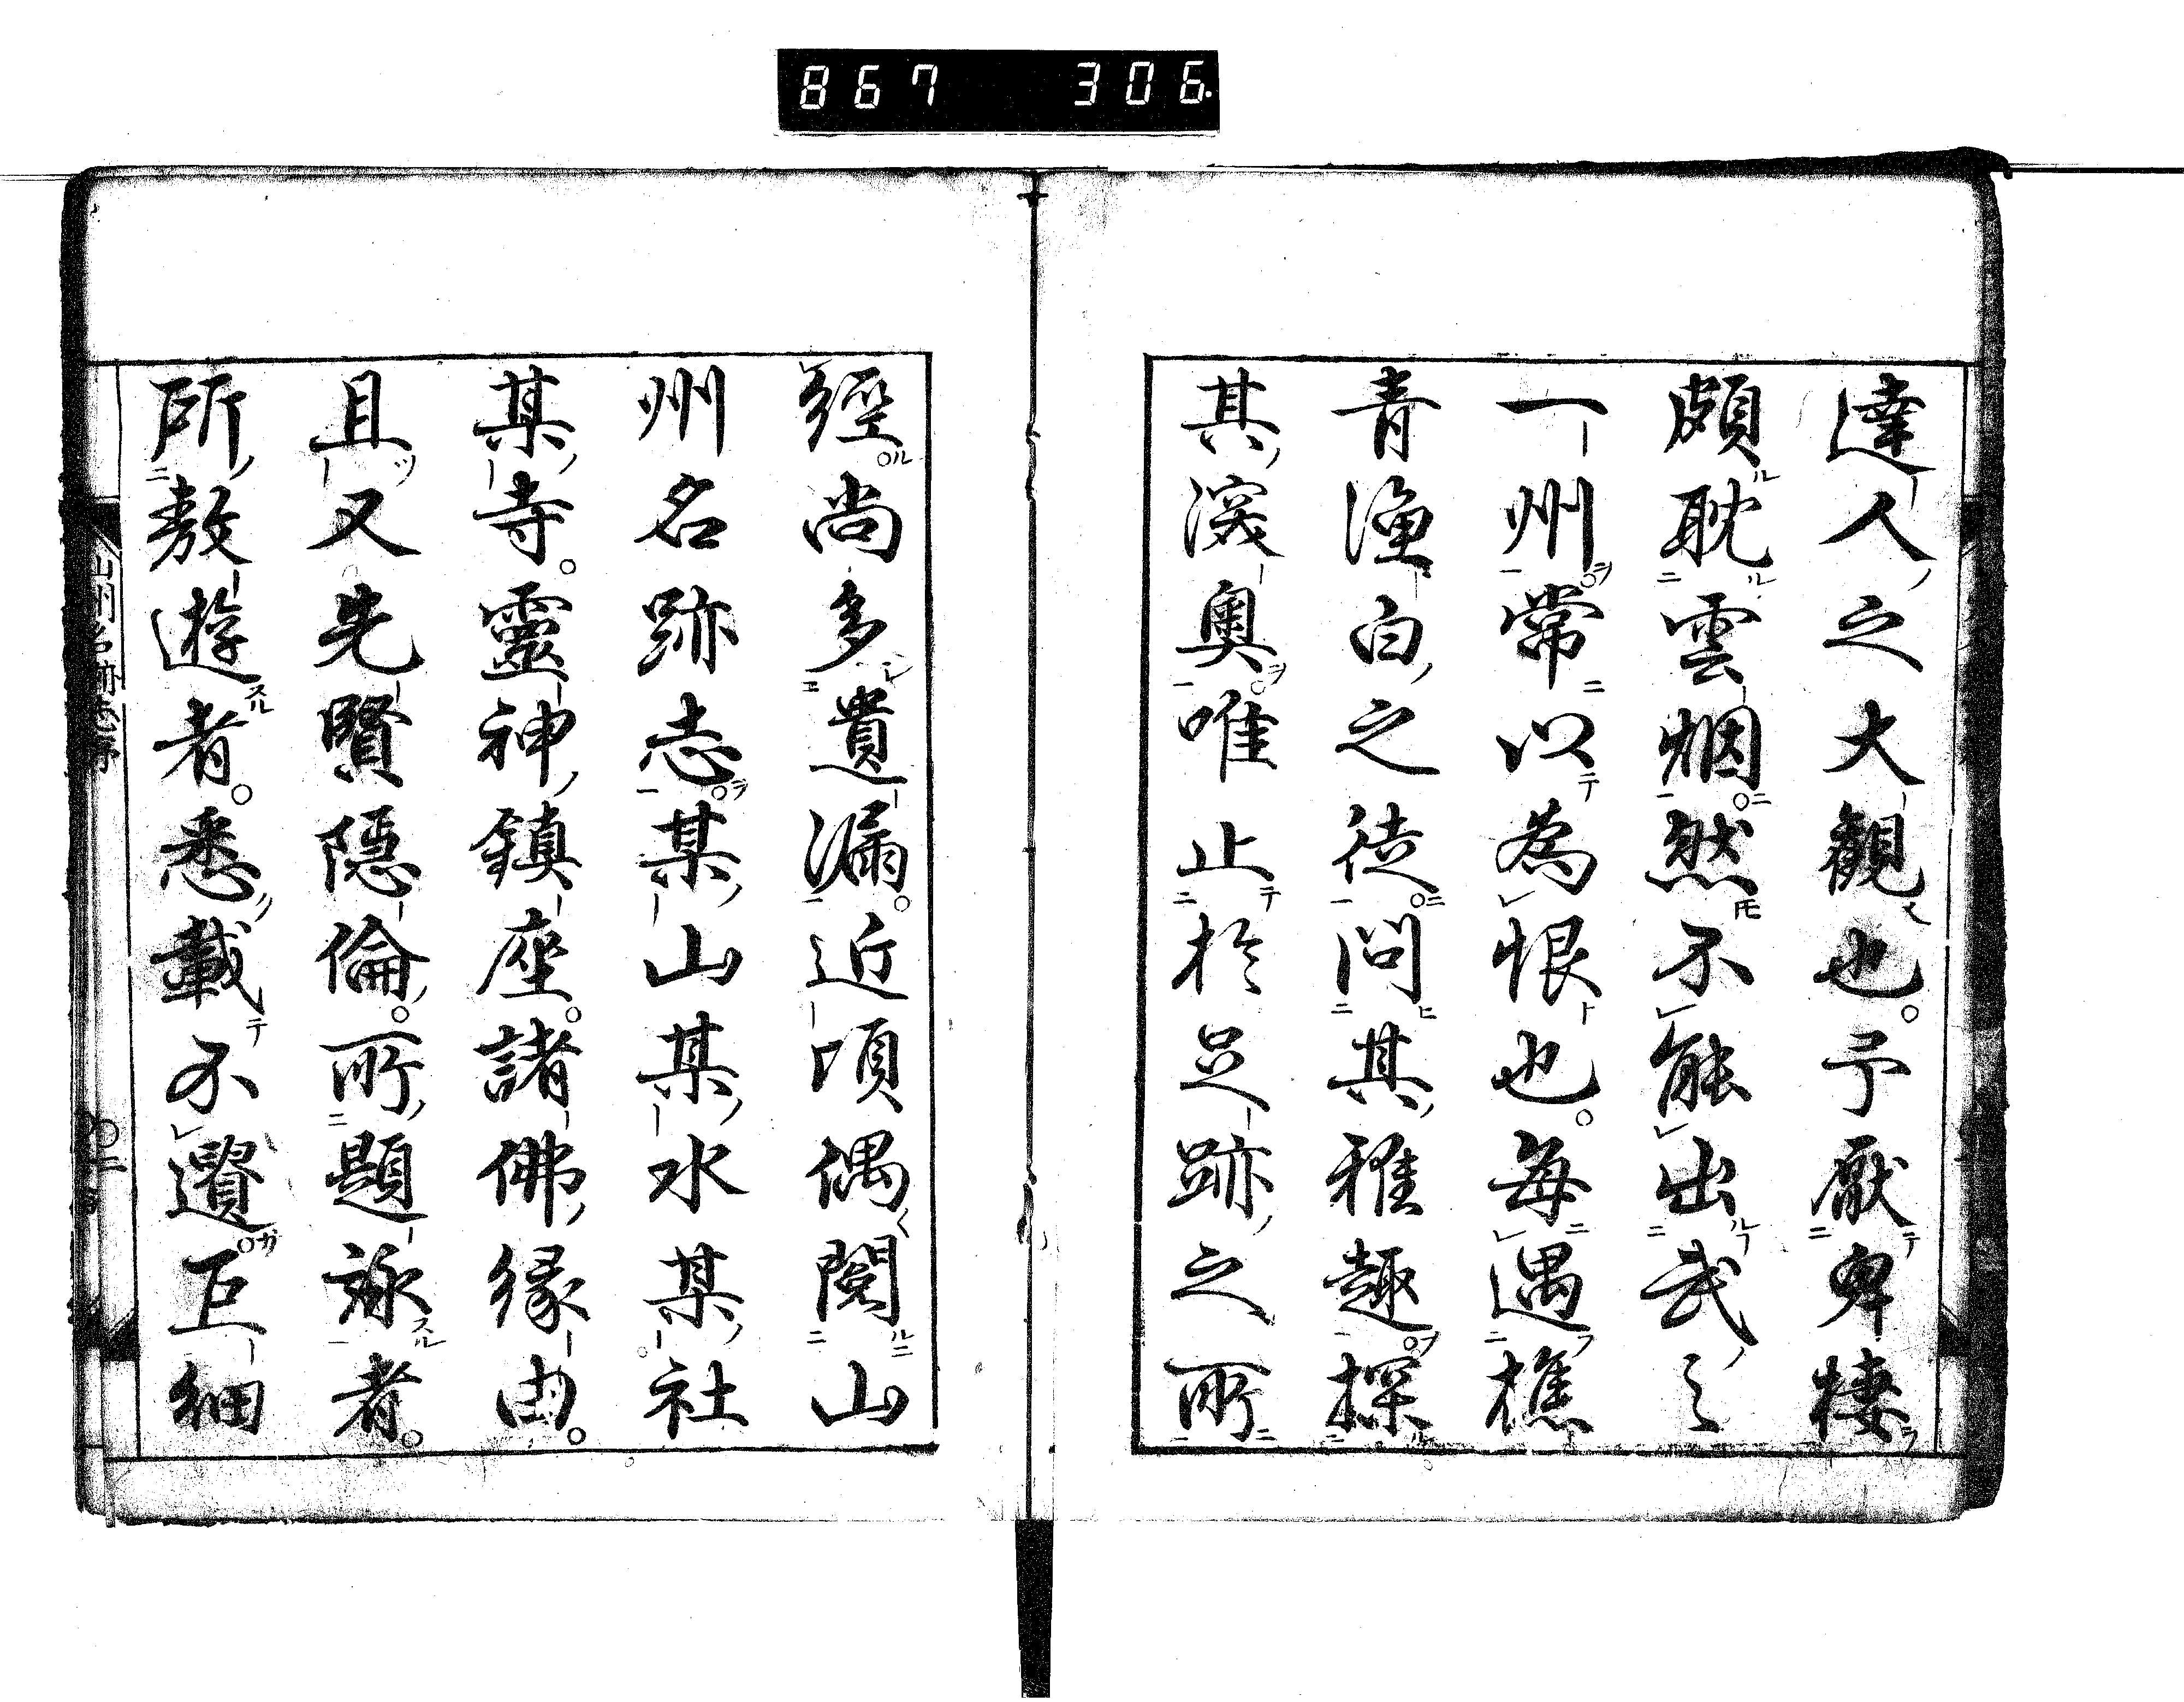 867 306.
達人之大観也。予厭卑棲
頗耽雲烟。然不能出武之
一州。常以為恨也。毎遇樵
青漁白之徒。問其雅趣。探
其深奥。唯止於足跡之所
經。尚多遺漏。近頃偶閲山
州名跡志。某山某水某社
某寺。靈神鎮座。諸佛縁由。
且又先賢隠倫。所題詠者。
所敖遊者。悉載不遺。巨細
山州名跡志序
〇二